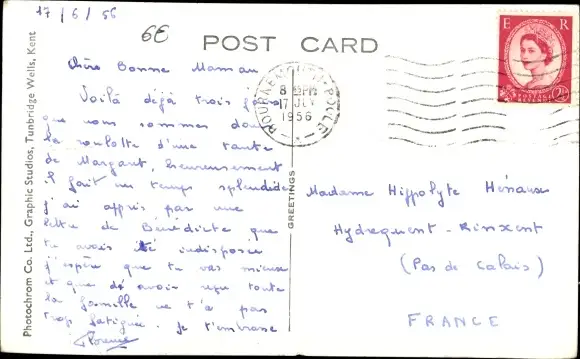 17/6/56
6E
POST CARD
E R
POSTAGE
2½
BOURNEMOUTH-POOLE
8 PM
17 JLY
1956
Chère Bonne Maman
Voilà déjà trois jours
que nous sommes dans
la roulotte d'une tante
de Margaut, heureusement
il fait un temps splendide
j'ai appris par une
lettre de Bénédicte que
tu avais été indisposée
j'espère que tu vas mieux
et que d'avoir reçu toute
la famille ne t'a pas
trop fatiguée. Je t'embrasse
Florence
GREETINGS
Madame Hippolyte Hénaux
Hydrequent - Rinxent
(Pas de Calais)
FRANCE
Photochrom Co. Ltd., Graphic Studios, Tunbridge Wells, Kent